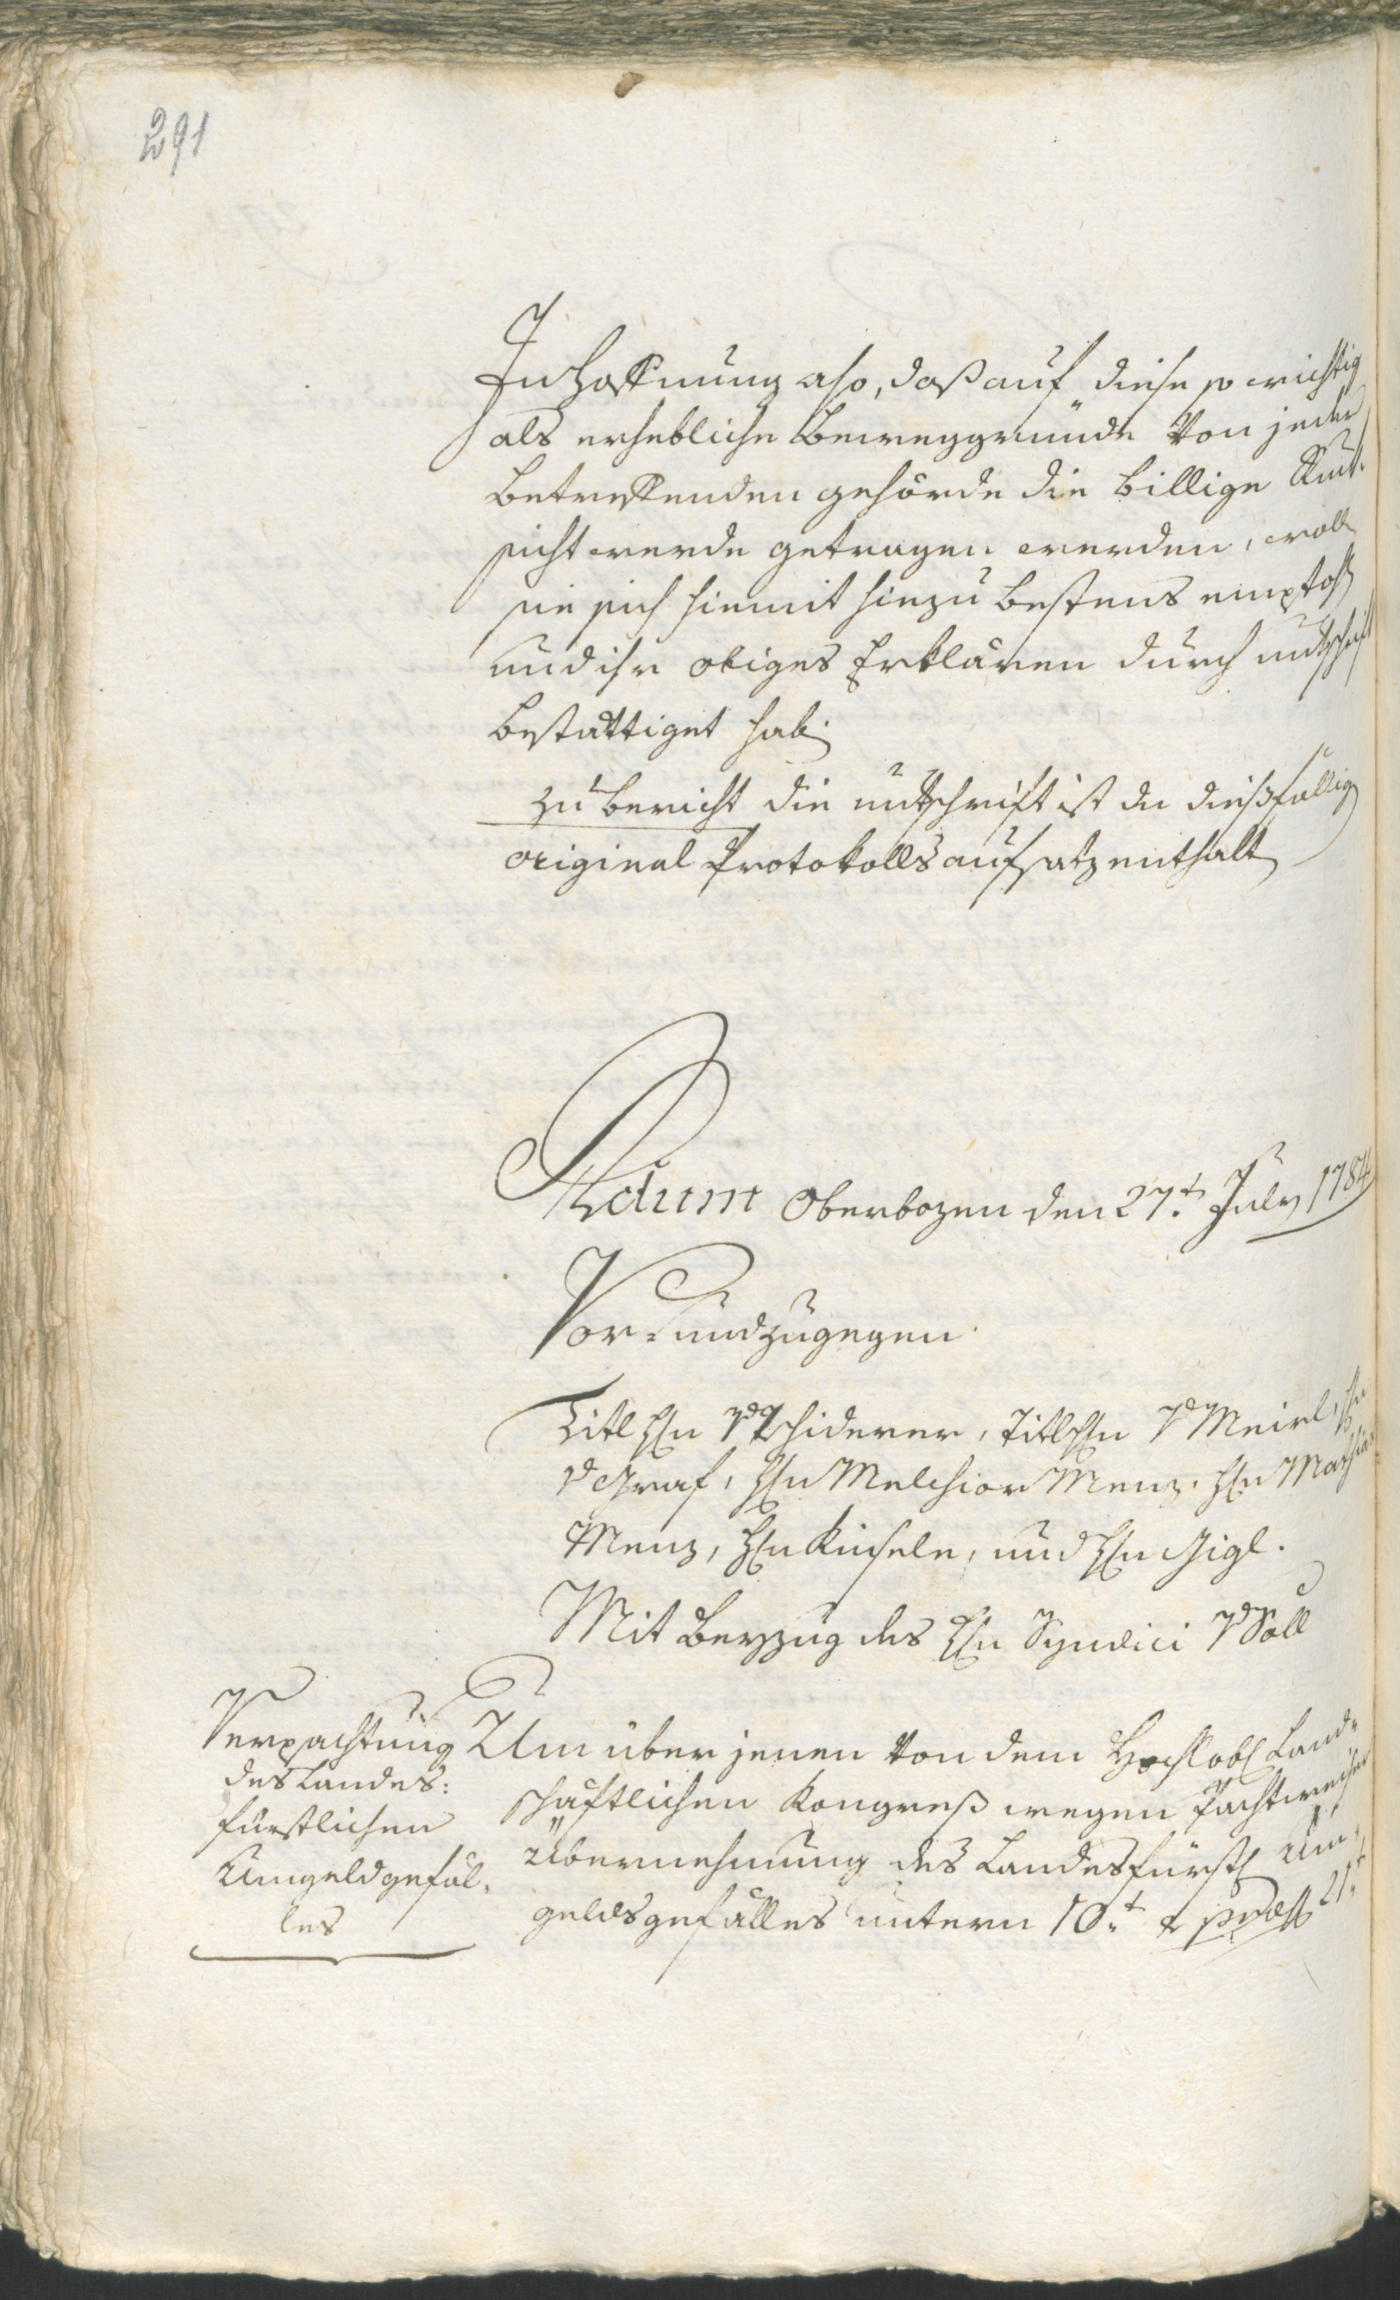 291
In Hoffnung also, daß auf diese so wichtig
als erhebliche Beweggründe von jeder
betreffenden gehörde die billige Ruk¬
sicht werde getragen werden, woll
sie sich hiemit hiezu bestens empfohl
und ihr obiges Erklären durch untschrift
bestattiget hab.
zu bericht die untschrift ist der dießfällig
original Protokollsaufsatz enthalt
Actum Oberbozen den 27.t July 1784
Vor- und zugegen.
Titl Hn v Tschiderer, Titl Hn v Meirl, Hn
v Graf, Hn Melchior Menz. Hn Mathias
Menz, Hn Kinsele, und Hn Gigl.
Mit Beyzug des Hn Syndici v Söll
Verpachtung
des Landes:
fürstlichen
Umgeldgefäl¬
les
Um über jenen von dem Hochlobl Land¬
schäftlichen Kongreß wegen Pachtweiser
übernehmung des Landesfürstl Um¬
geldsgefälles untern 10.t & præs 21.t